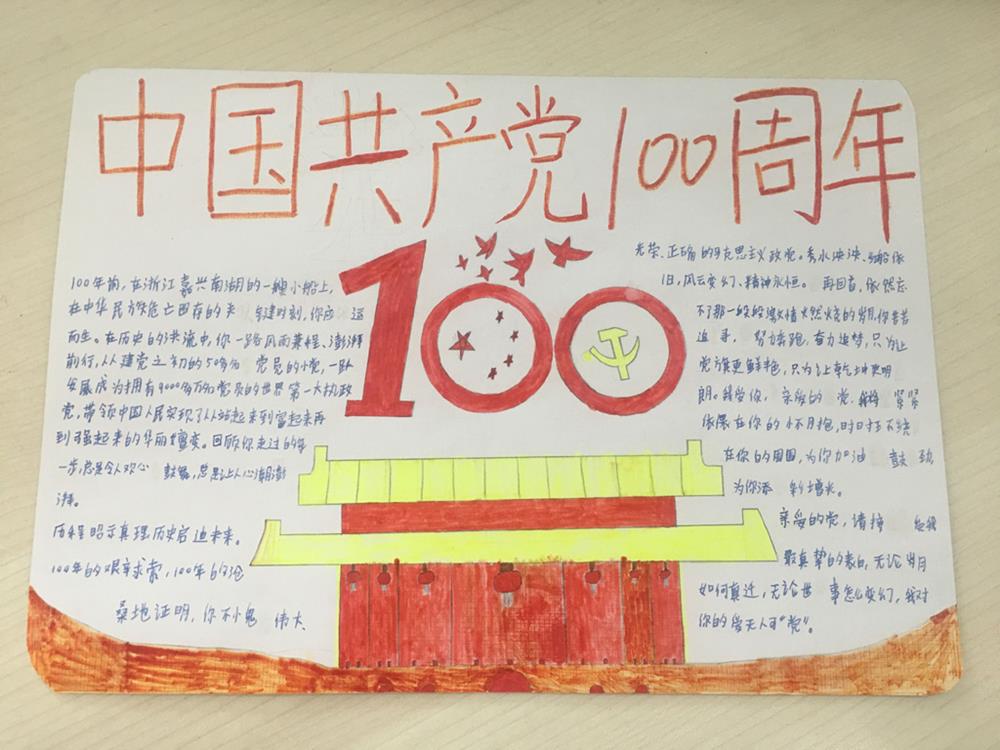 中国共产党100周年
100
100年前,在浙江嘉兴南湖的一艘小船上,
在中华民族危亡图存的关 键时刻,你应 运
而生。在历史的洪流中,你一路风雨兼程、澎湃
前行,从建党之初的50多名 党员的小党,一跃
发展成为拥有9000多万名党员的世界第一大执政
党,带领中国人民实现了从站起来到富起来再
到强起来的华丽嬗变。回顾你走过的每
一步,总是令人欢心 鼓舞,总是让人心潮澎
湃。
历程昭示真理历史启迪未来。
100年的艰辛求索,100年的沧
桑地证明,你不小鬼 伟大
光荣、正确的马克思主义政党。秀水泱泱、红船依
旧,风云变幻、精神永恒。 再回首,依然忘
不了那一段段激情火燃烧的岁月,你苦苦
追寻, 努力奔跑,奋力追梦,只为让
党旗更鲜艳,只为让乾坤更明
朗。我爱你, 亲爱的 党, 紧紧
依偎在你的怀抱,时时刻刻不绕
在你的周围,为你加油 鼓 劲
为你添 彩增光。
亲爱的党,请接 给我
最真挚的表白,无论岁月
如何真迁,无论世 事怎么变幻,我对
你的爱无人可“党”。